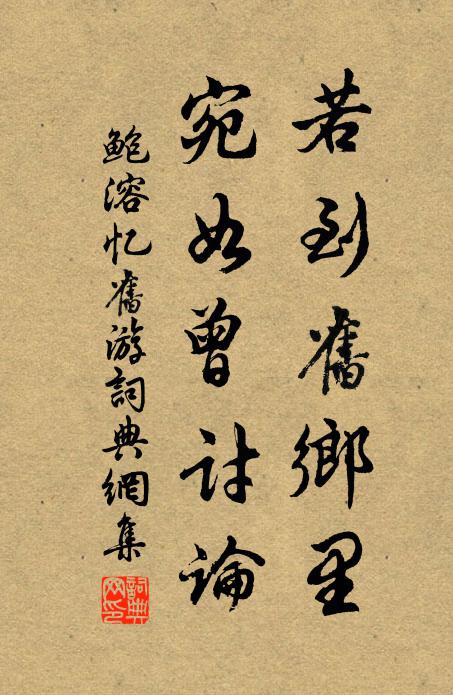 若到舊鄉里
宛如曾討論
鮑溶忆舊游詞典網集
詞典網印